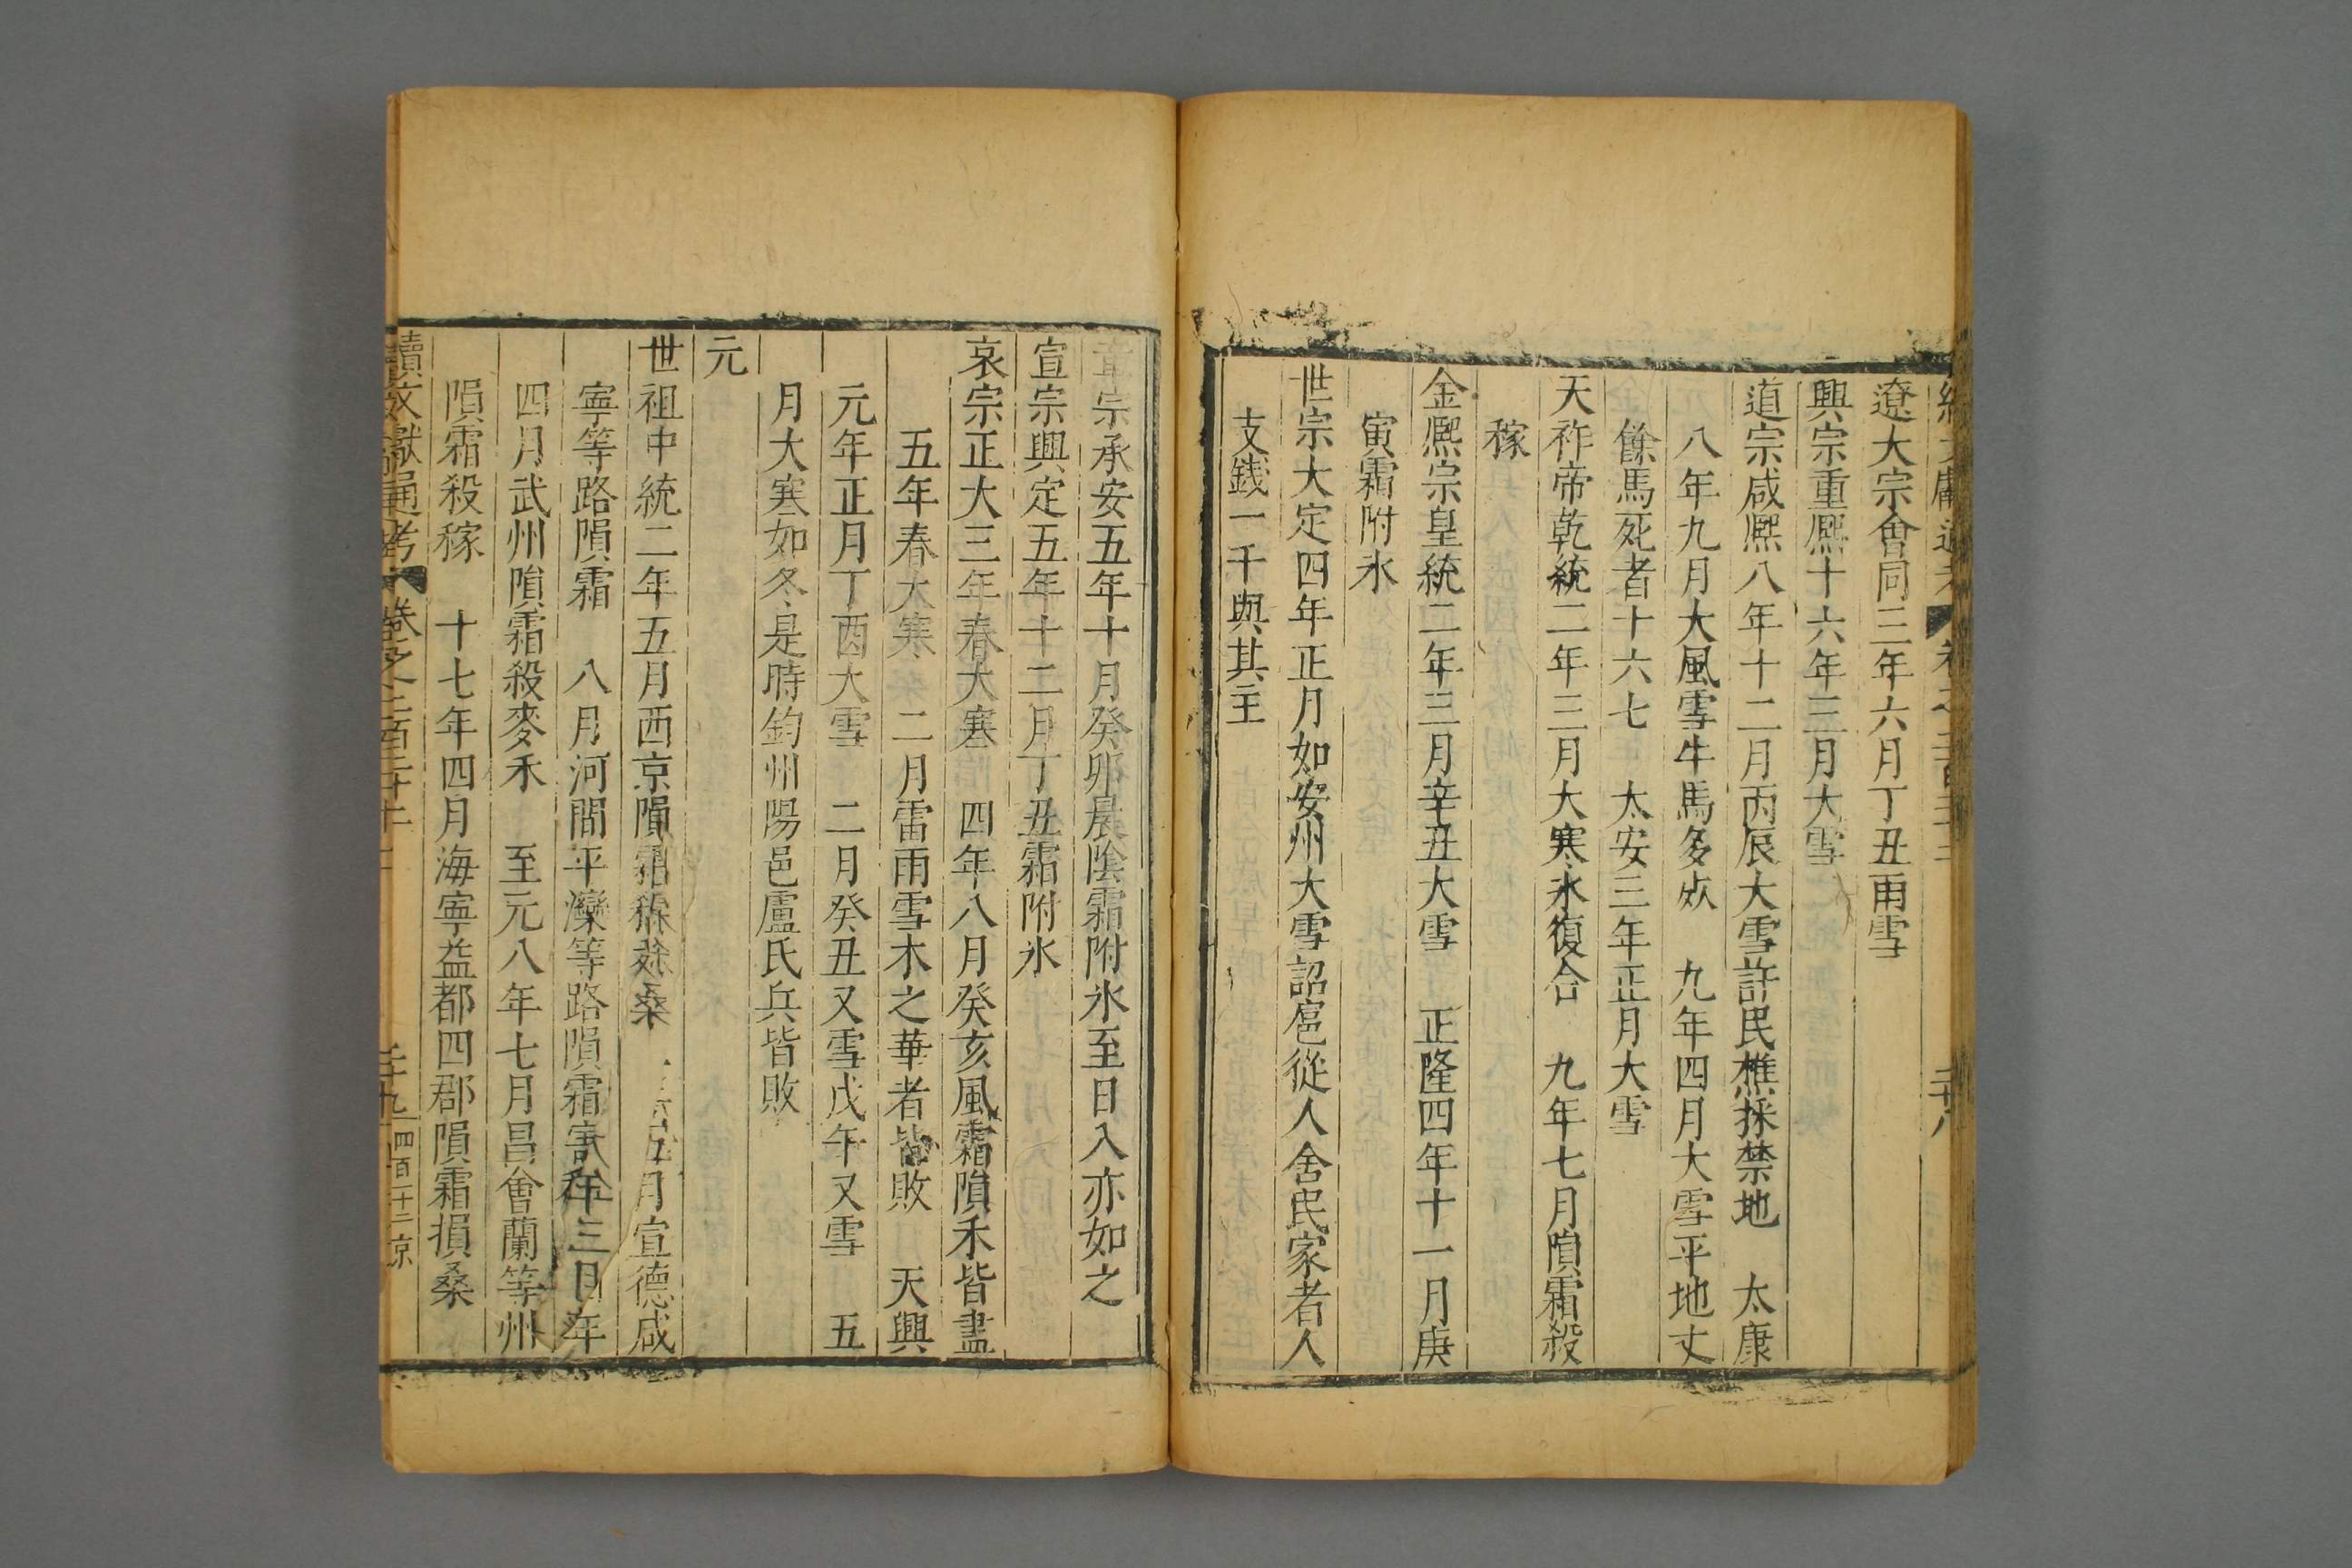 遼大宗會同三年六月丁丑雨雪
興宗重熈十六年三月大雪
道宗咸熈八年十二月丙辰大雪許民樵採禁地 太康
八年九月大風雪牛馬多死 九年四月大雪平地丈
餘馬死者十六七 太安三年正月大雪
天祚帝乾統二年三月大寒氷復合 九年七月隕霜殺
稼
金熈宗皇統二年三月辛丑大雪 正隆四年十一月庚
寅霜附氷
世宗大定四年正月如安州大雪詔扈從人舍民家者人
支錢一千與其主
章宗承安五年十月癸卯晨陰霜附氷至日入亦如之
宣宗興定五年十二月丁丑霜附氷
哀宗正大三年春大寒 四年八月癸亥風霜隕禾皆盡
五年春大寒 二月雷雨雪木之華者皆敗 天興
元年正月丁酉大雪 二月癸丑又雪戊午又雪 五
月大寒如冬是時鈞州陽邑盧氏兵皆敗
元
世祖中統二年五月西京隕霜殺桑 五月宣德咸
寧等路隕霜 八月河間平灤等路隕霜害稼 三年
四月武州隕霜殺麥禾 至元八年七月昌會蘭等州
隕霜殺稼 十七年四月海寧益都四郡隕霜損桑
續文獻通考 卷之二百二十 二十九 四百十二 京